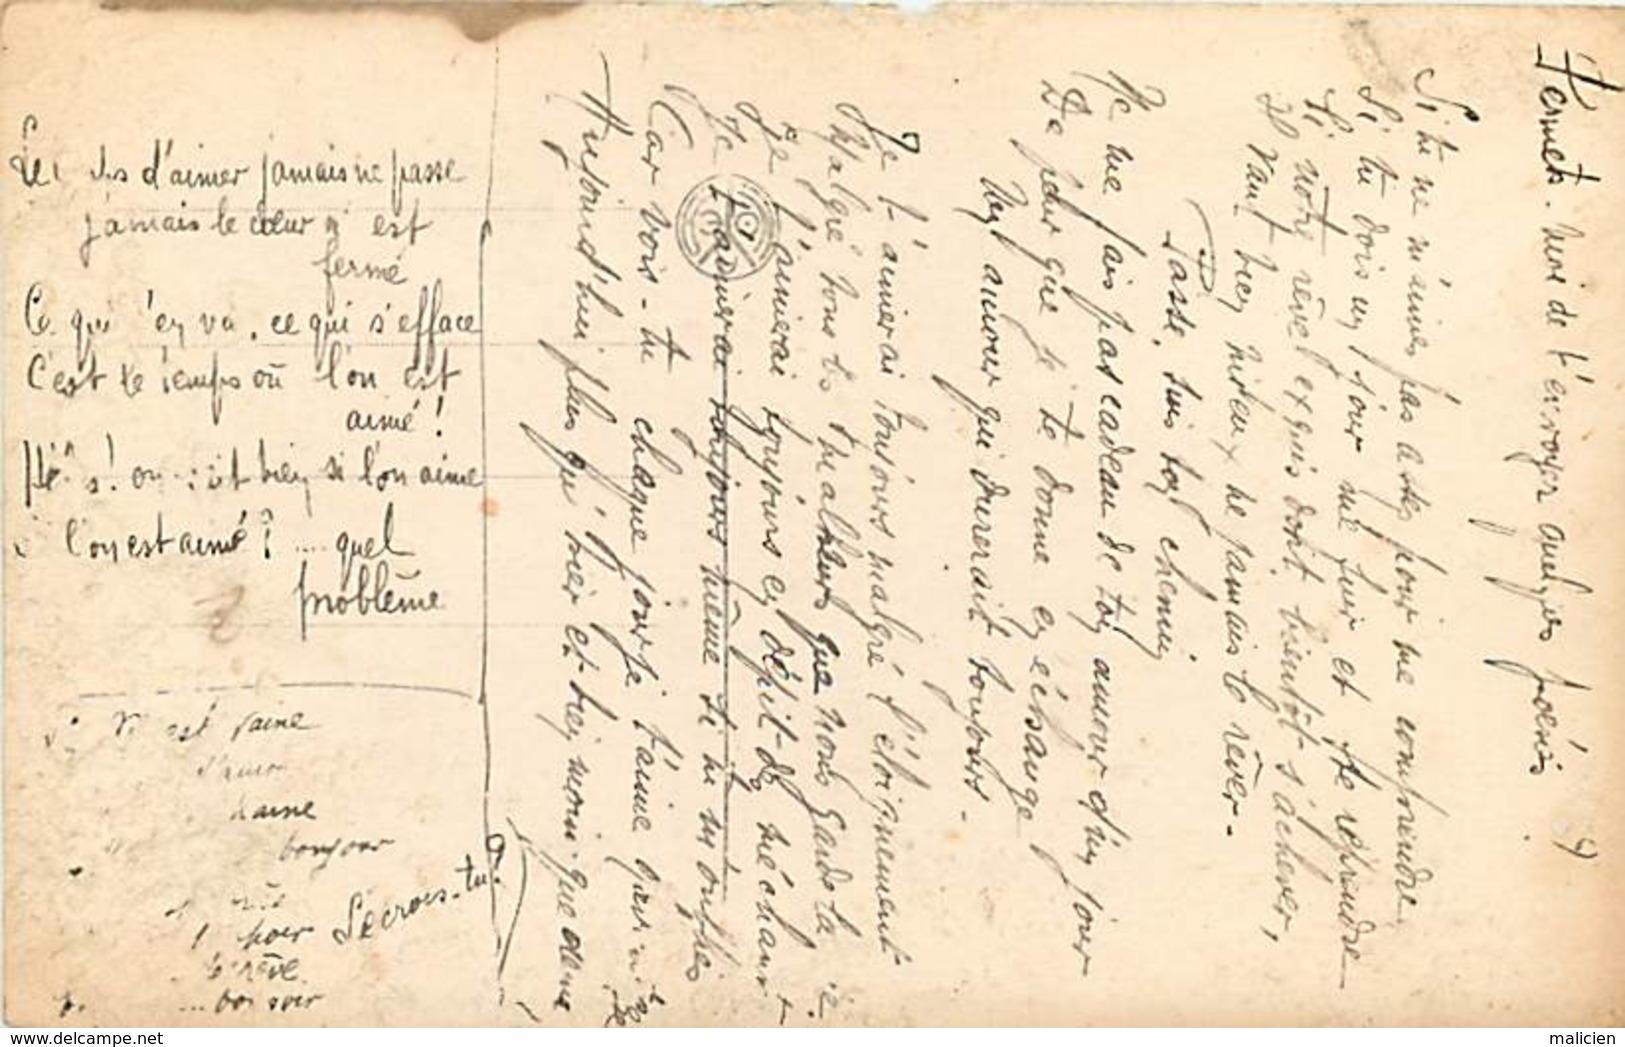 Permets-moi de t'envoyer quelques poésies
Si tu ne m'aimes pas assez pour me comprendre
Si tu dois un jour me fuir et te reprendre
Si notre rêve exquis doit bientôt s'achever,
Il vaut bien mieux ne jamais le rêver -
Passe, suis ton chemin
Ne me fais pas cadeau de ton amour d'un jour
De peur que je te donne en échange
Un amour qui durerait toujours -
Je t'aimerai toujours malgré l'éloignement
Malgré tous les malheurs que nous garde la vie
Je t'aimerai toujours en dépit des méchants
Je t'aimerai toujours même si tu m'oublies
Car vois-tu chaque jour je t'aime
Aujourd'hui plus qu'hier et bien moins que demain
d'aimer jamais ne passe
jamais le cœur n'est
fermé
Ce qui s'en va, ce qui s'efface
C'est le temps où l'on est
aimé!
bien si l'on aime
l'on est aimé? .... quel
problème
est vaine
d'amour
haine
bonjour
Le crois-tu?
rêve
... bonsoir
malicien